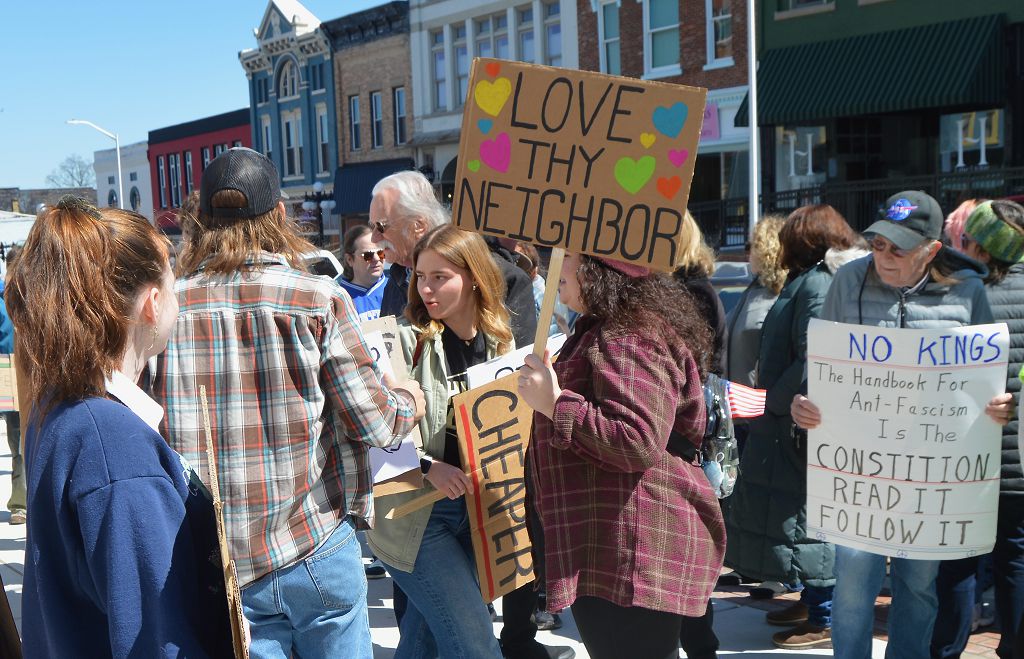 LOVE
THY
NEIGHBOR
CHEAPER
NO KINGS
The Handbook For
Ant-Fascism
Is The
CONSTITION
READ IT
FOLLOW IT